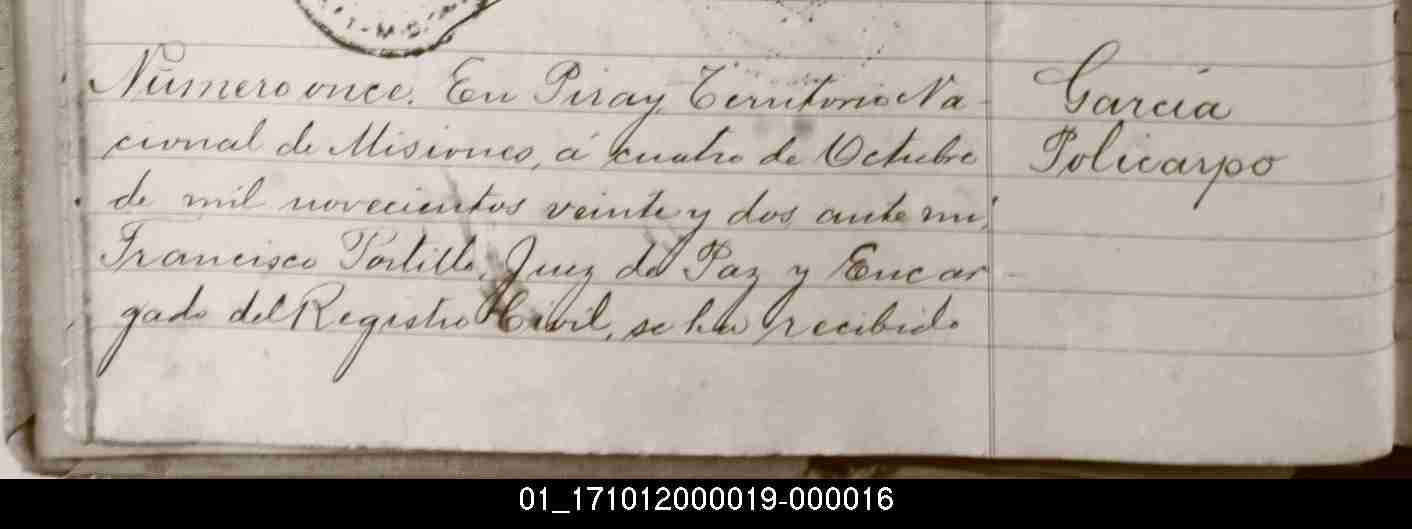 Número once. En Piray, Territorio Na-
cional de Misiones, á cuatro de Octubre
de mil novecientos veinte y dos, ante mi,
Francisco Portillo, Juez de Paz y Encar-
gado del Registro Civil, se ha recibido
García
Policarpo
01_171012000019-000016